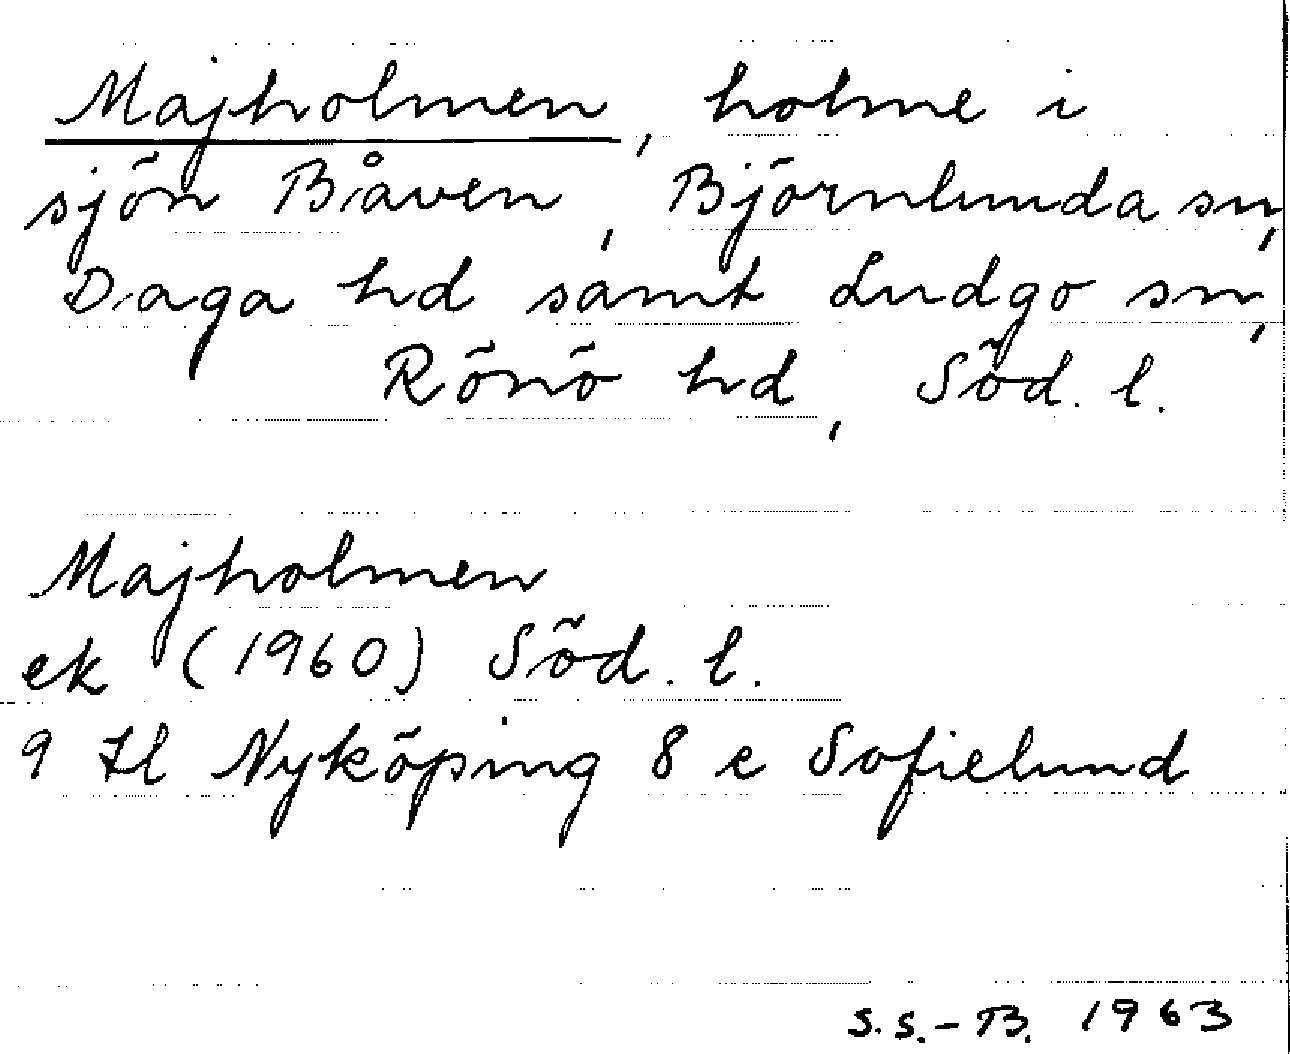 Majholmen, holme i
sjön Båven, Björnlunda sn,
Daga hd samt Ludgo sn,
Rönö hd, Söd. l.
Majholmen
ek (1960) Söd. l.
9 Hl Nyköping 8 e Sofielund
S.S.-B. 1963